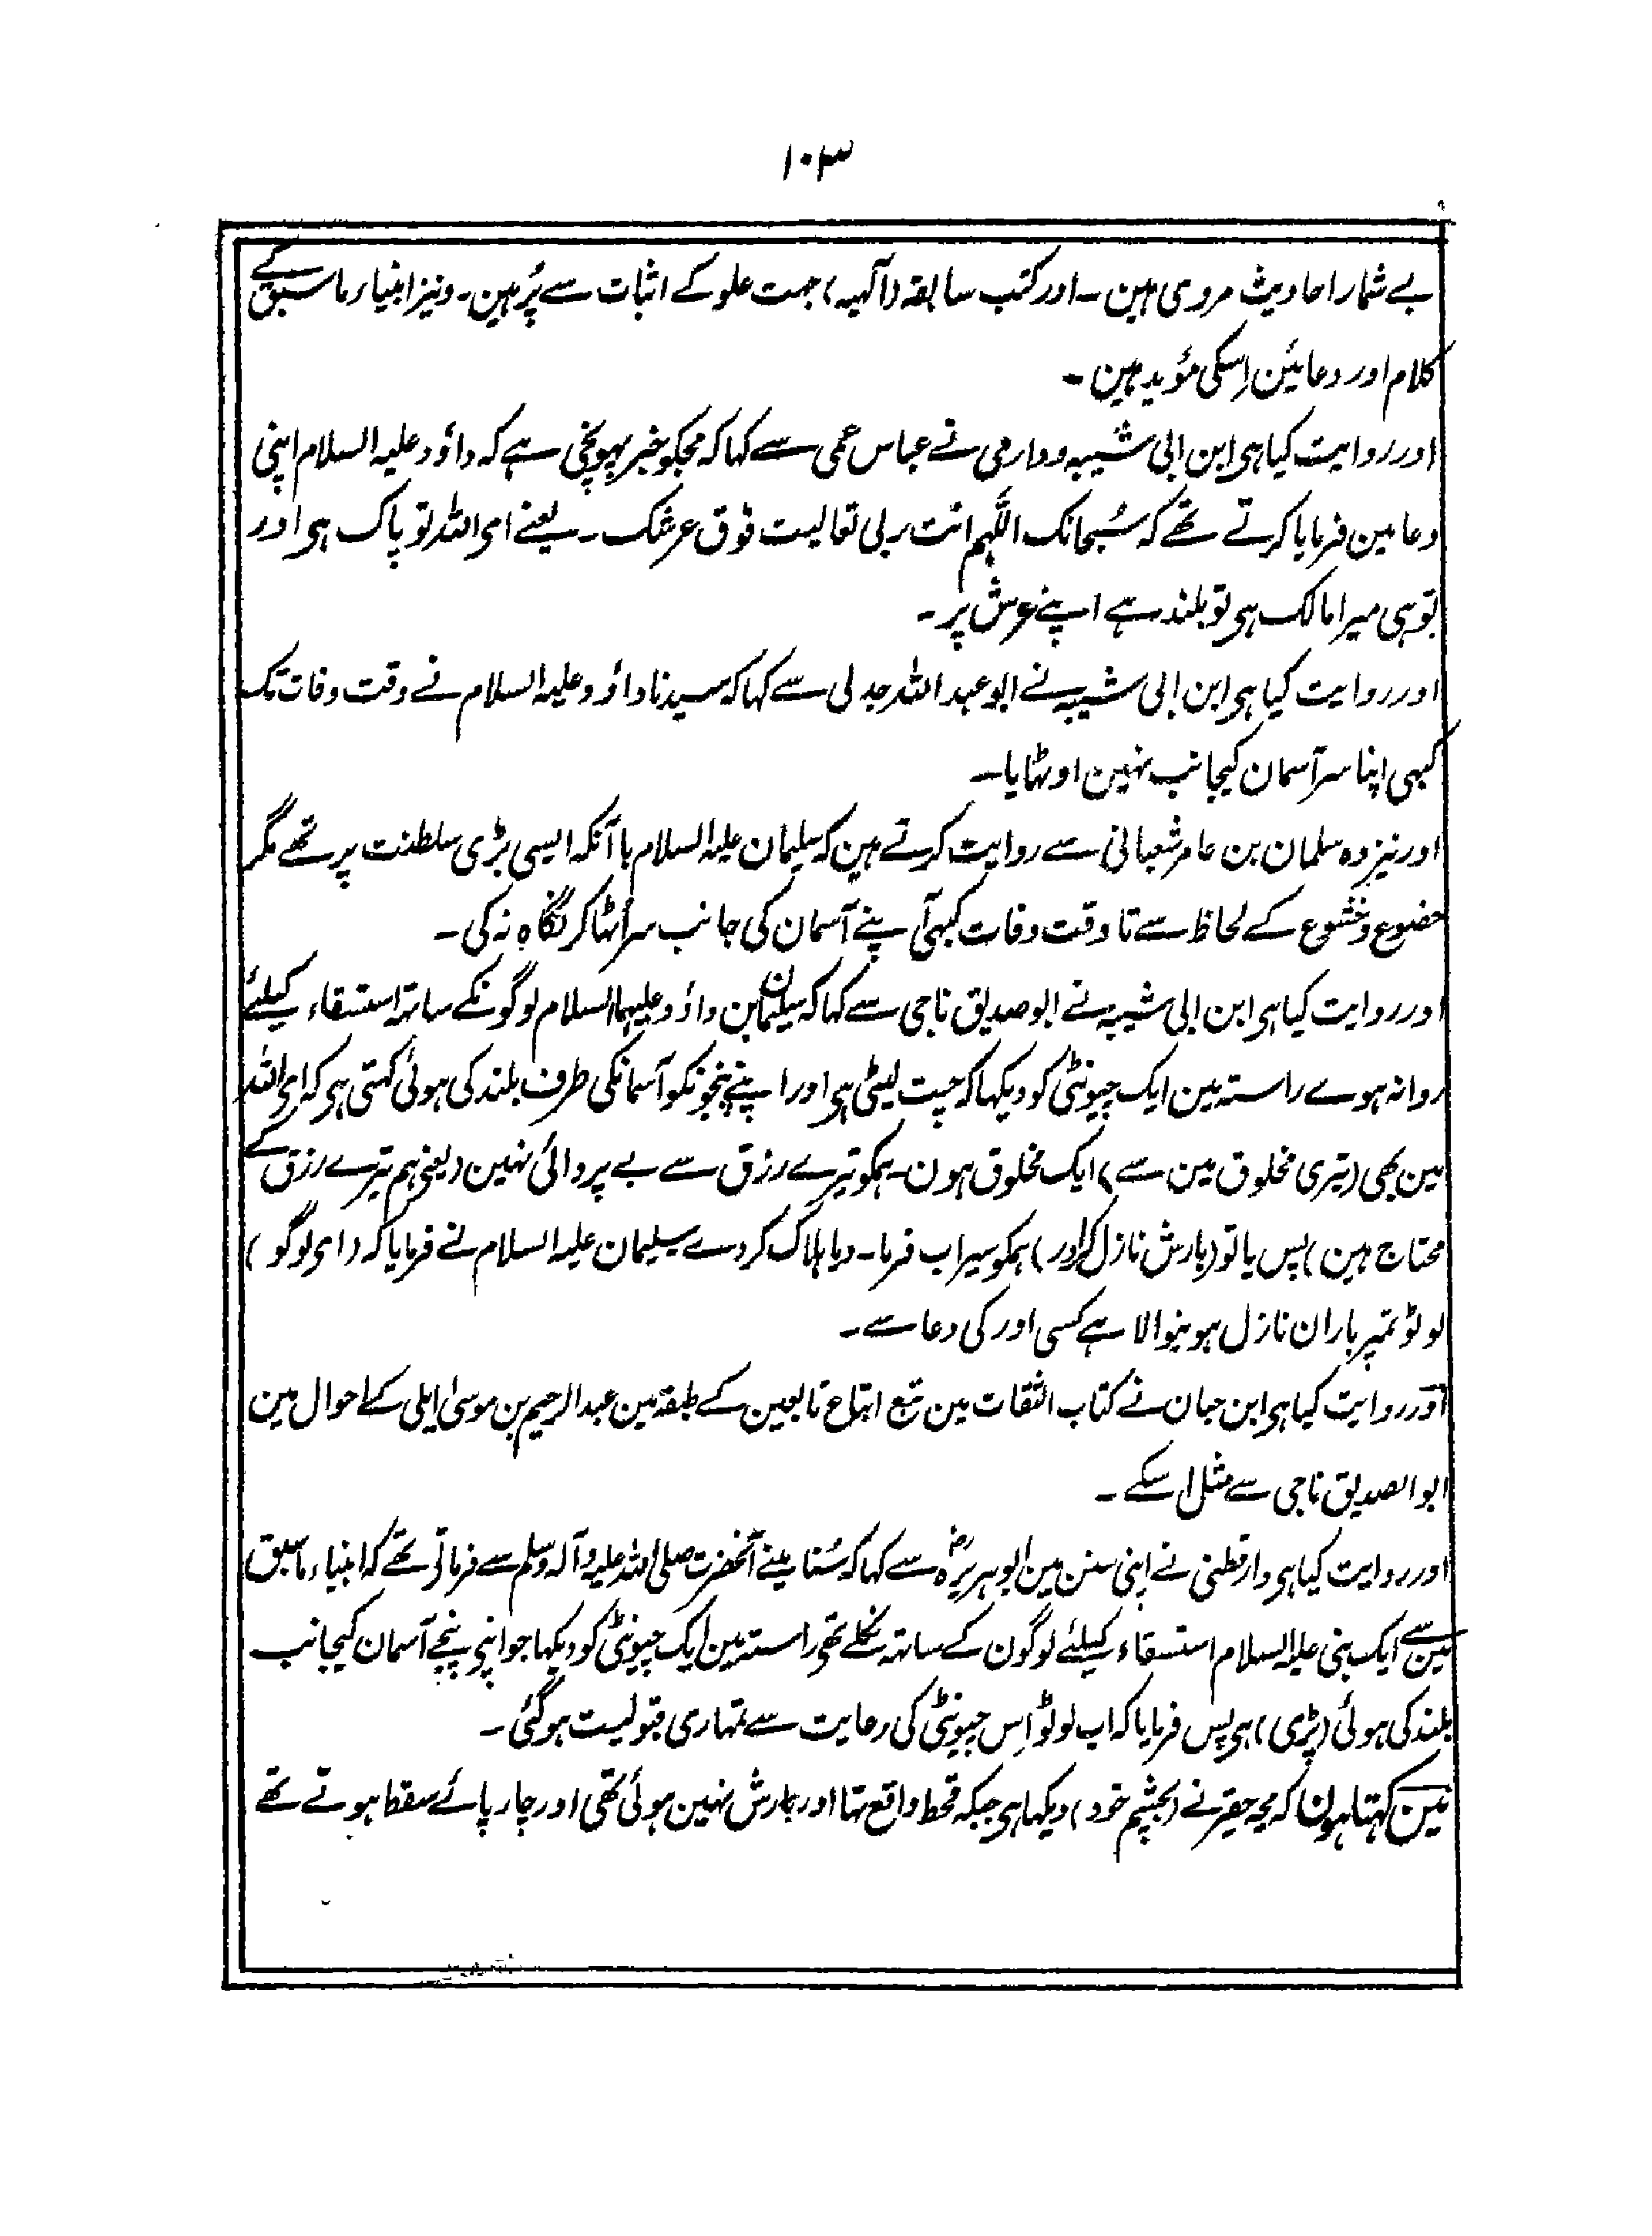 ۱۰۳
بے شمار احادیث مروی ہین ۔ اور کتب سابقہ (آلہیہ) جہت علو کے اثبات سے پُر ہین ۔ ونیز انبیاء ماسبق کے
کلام اور دعائین اِسکی مؤید ہین ۔
اور روایت کیا ہی ابن ابی شیبہ ودارمی نے عباس عمی سے کہا کہ مجکو خبر پہونچی ہے کہ داؤد علیہ السلام اپنی
دعا مین فرمایا کرتے تھے کہ سُبحانک اللّٰہم انت ربی تعالیت فوق عرشک ۔ یعنے ای اللہ تو پاک ہی اور
تو ہی میرا مالک ہی تو بلند ہے اپنے عرش پر ۔
اور روایت کیا ہی ابن ابی شیبہ نے ابو عبد اللہ جدلی سے کہا کہ سیدنا داؤد علیہ السلام نے وقت وفات تک
کبہی اپنا سر آسمان کیجانب نہین اوٹہایا ۔
اور نیز وہ سلمان بن عامر شعبانی سے روایت کرتے ہین کہ سلیمان علیہ السلام با آنکہ ایسی بڑی سلطنت پر تھے مگر
خضوع وخشوع کے لحاظ سے تا وقت وفات کبہی آپنے آسمان کی جانب سر اُٹہا کر نگاہ نہ کی ۔
اور روایت کیا ہی ابن ابی شیبہ نے ابو صدیق ناجی سے کہا کہ سلیمان بن داؤد علیہما السلام لوگونکے ساتہ استسقاء کیلئے
روانہ ہوے راستہ مین ایک چیونٹی کو دیکہا کہ چت لیٹی ہی اور اپنے پنجونکو آسمانکی طرف بلند کی ہوئی کہتی ہی کہ ای اللہ
مین بھی (تیری مخلوق مین سے) ایک مخلوق ہون ۔ ہمکو تیرے رزق سے بے پروائی نہین (یعنے ہم تیرے رزق کے
محتاج ہین) پس یا تو (بارش نازل کر اور) ہمکو سیراب فرما ۔ ویا ہلاک کر دے سلیمان علیہ السلام نے فرمایا کہ (ای لوگو)
لوٹو تمپر باران نازل ہونیوالا ہے کسی اور کی دعا سے ۔
اور روایت کیا ہی ابن حبان نے کتاب الثقات مین تبع اتباع تابعین کے طبقہ مین عبد الرحیم بن موسیٰ ایلی کے احوال مین
ابو الصدیق ناجی سے مثل اسکے ۔
اور روایت کیا ہی دارقطنی نے اپنی سنن مین ابو ہریرہؓ سے کہا کہ سُنا مینے آنحضرت صلی اللہ علیہ وآلہ وسلم سے فرماتی تھے کہ انبیاء ماسبق
مین سے ایک نبی علیہ السلام استسقاء کیلئے لوگون کے ساتہ نکلے تھی راستہ مین ایک چیونٹی کو دیکہا جو اپنی پنجے آسمان کیجانب
بلند کی ہوئی (پڑی) ہی پس فرمایا کہ اب لوٹو اِس چیونٹی کی رعایت سے تمہاری قبولیت ہو گئی ۔
مین کہتا ہون کہ مجہ حقیر نے (بچشم خود) دیکہا ہی جبکہ قحط واقع تہا اور بارش نہین ہوئی تھی اور چار پائے سقط ہوتے تھے